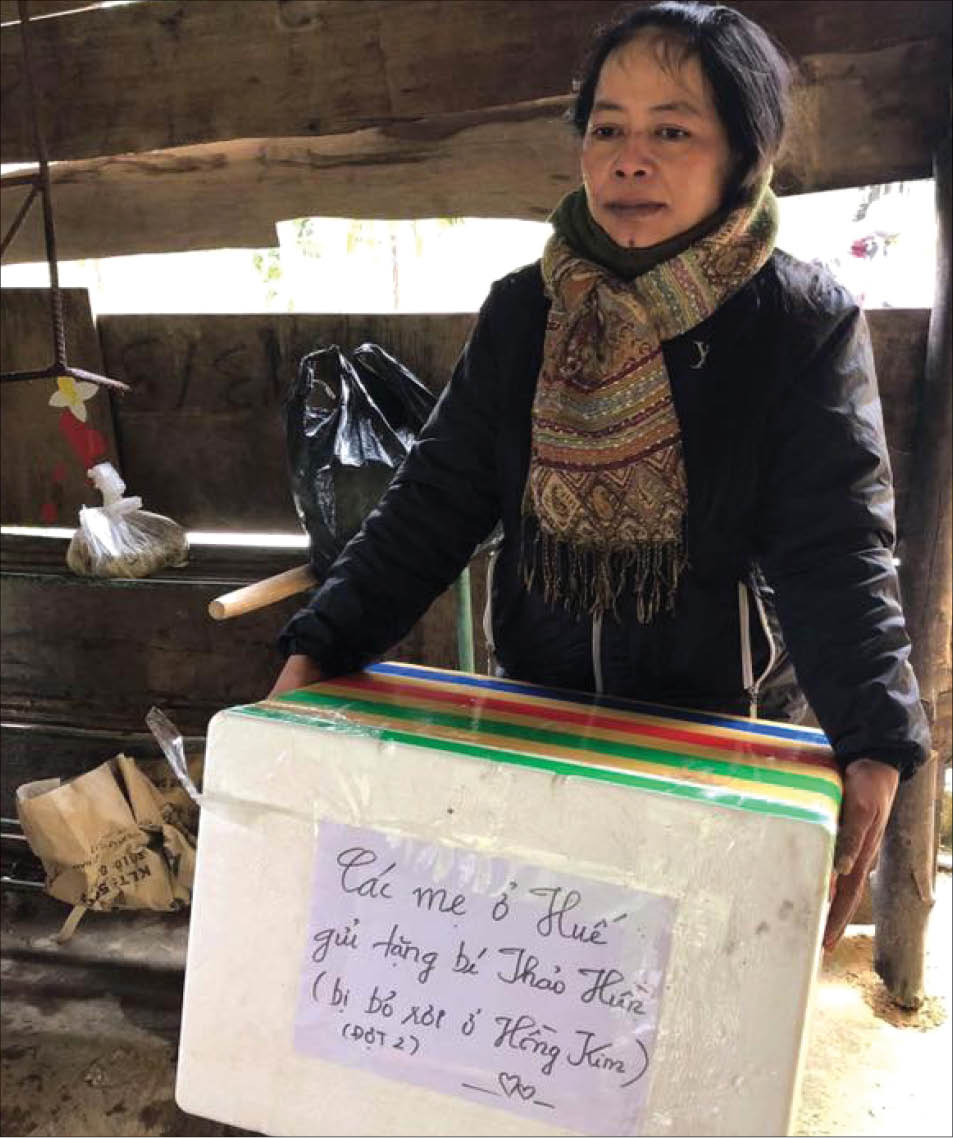 Các mẹ ở Huế
gửi tặng bé Thảo Hiền
(bị bỏ rơi ở Hồng Kim)
(ĐỢT 2)